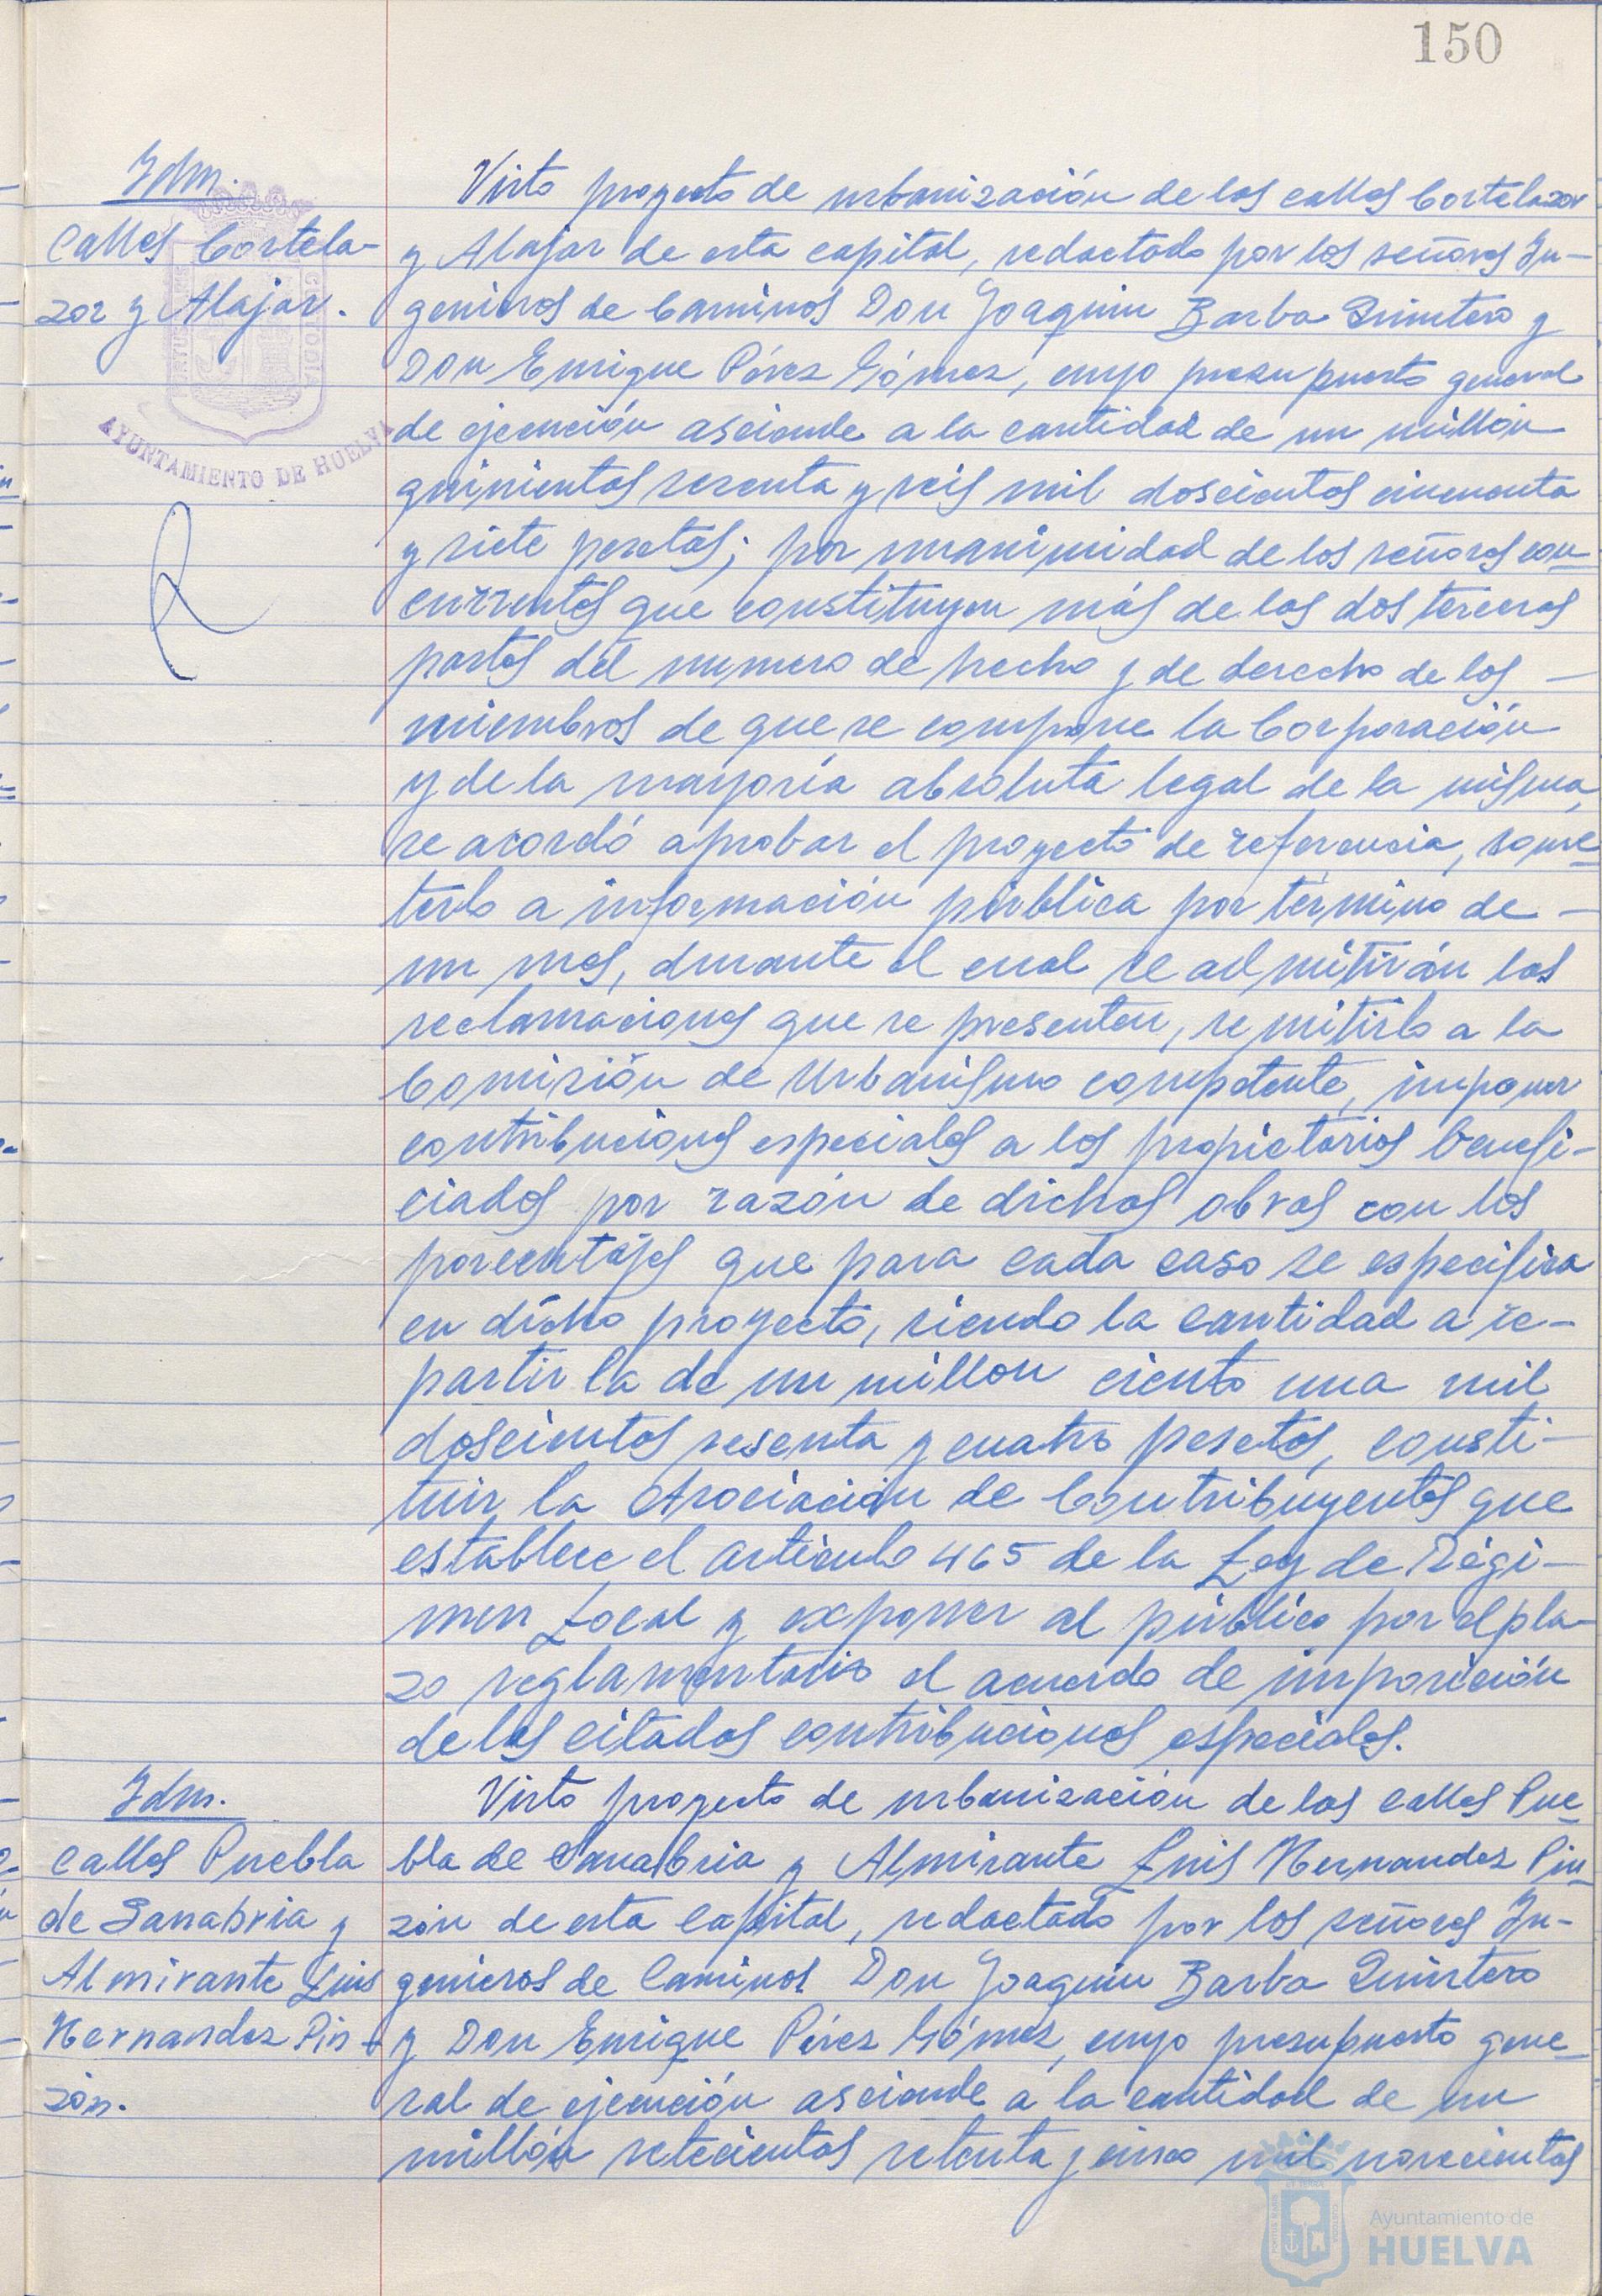 150
Idm.
Calles Cortela-
zor y Alajar.
AYUNTAMIENTO DE HUELVA
PORTUS MARIS
CUSTODIA
Visto proyecto de urbanización de las calles Cortelazor
y Alajar de esta capital, redactado por los señores In-
genieros de Caminos Don Joaquin Barba Quintero y
Don Enrique Pérez Gómez, cuyo presupuesto general
de ejecución asciende a la cantidad de un millón
quinientas sesenta y seis mil doscientas cincuenta
y siete pesetas; por unanimidad de los señores con-
currentes que constituyen más de las dos terceras
partes del numero de hecho y de derecho de los -
miembros de que se compone la Corporación
y de la mayoría absoluta legal de la misma,
se acordó aprobar el proyecto de referencia, some-
terlo a información pública por término de -
un mes, durante el cual se admitirán las
reclamaciones que se presenten, remitirlo a la
Comisión de Urbanismo competente, imponer
contribuciones especiales a los propietarios benefi-
ciados por razón de dichas obras con los
porcentajes que para cada caso se especifica
en dicho proyecto, siendo la cantidad a re-
partir la de un millon ciento una mil
doscientas sesenta y cuatro pesetas, consti-
tuir la Asociación de Contribuyentes que
establece el articulo 465 de la Ley de Régi-
men Local y exponer al público por el pla-
zo reglamentario el acuerdo de imposición
de las citadas contribuciones especiales.
Idm.
Calles Puebla
de Sanabria y
Almirante Luis
Hernandez Pin-
zón.
Visto proyecto de urbanización de las calles Pue-
bla de Sanabria y Almirante Luis Hernandez Pin-
zón de esta capital, redactado por los señores In-
genieros de Caminos Don Joaquin Barba Quintero
y Don Enrique Pérez Gómez, cuyo presupuesto gene-
ral de ejecución asciende a la cantidad de un
millón setecientas setenta y cinco mil novecientas
Ayuntamiento de
HUELVA